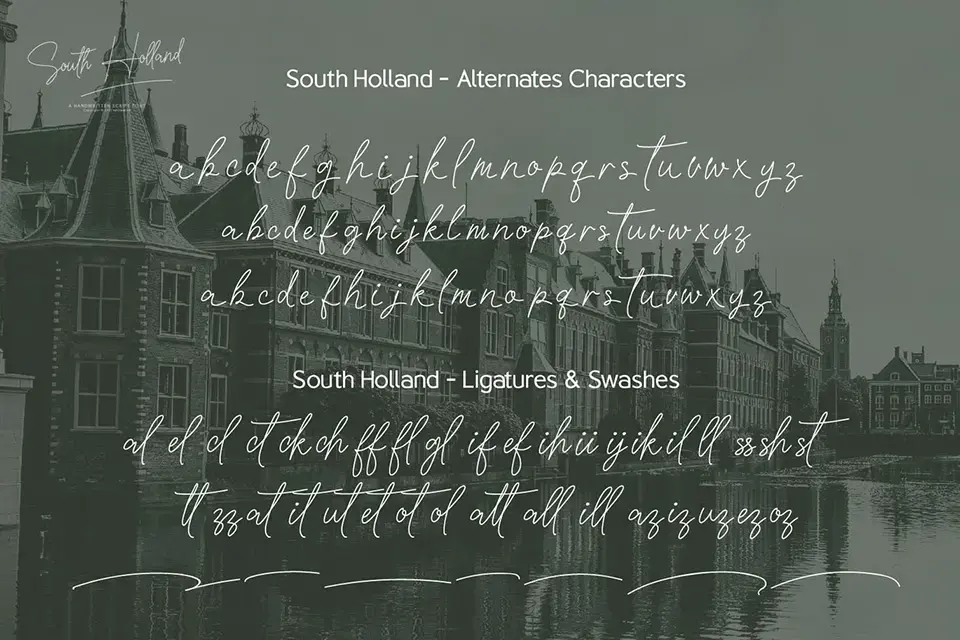 South Holland
A HANDWRITTEN SCRIPT FONT
South Holland - Alternates Characters
a b c d e f g h i j k l m n o p q r s t u v w x y z
a b c d e f g h i j k l m n o p q r s t u v w x y z
a b c d e f h i j k l m n o p q r s t u v w x y z
South Holland - Ligatures & Swashes
al el cl ct ck ch ff fl gl if ef ih ii ij ik il ll ss sh st
tt zz at it ut et ot ol att all ill az iz uz ez oz